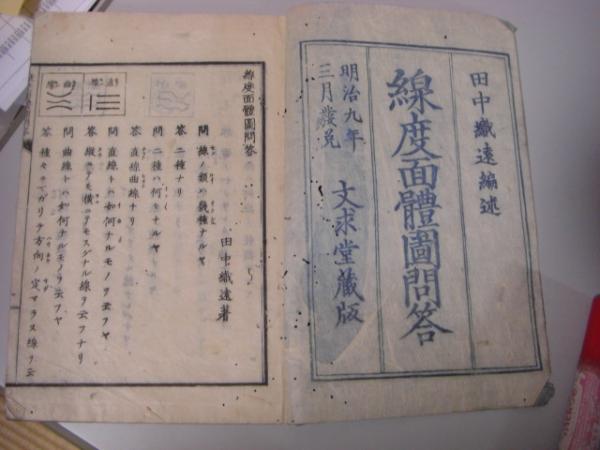 田中織遠編述
線度面體圖問答
明治九年
三月發兌
文求堂藏版
線度面體圖問答
田中織遠著
問 線ノ類ハ幾種ナルヤ
答 二種ナリ
問 二種ハ何々ナルヤ
答 直線曲線ナリ
問 直線トハ如何ナルモノヲ云フヤ
答 縱ニテモ横ニテモスグナル線ヲ云フナリ
問 曲線トハ如何ナルモノヲ云フヤ
答 種々ニマガリテ方向ノ定マラヌ線ヲ云